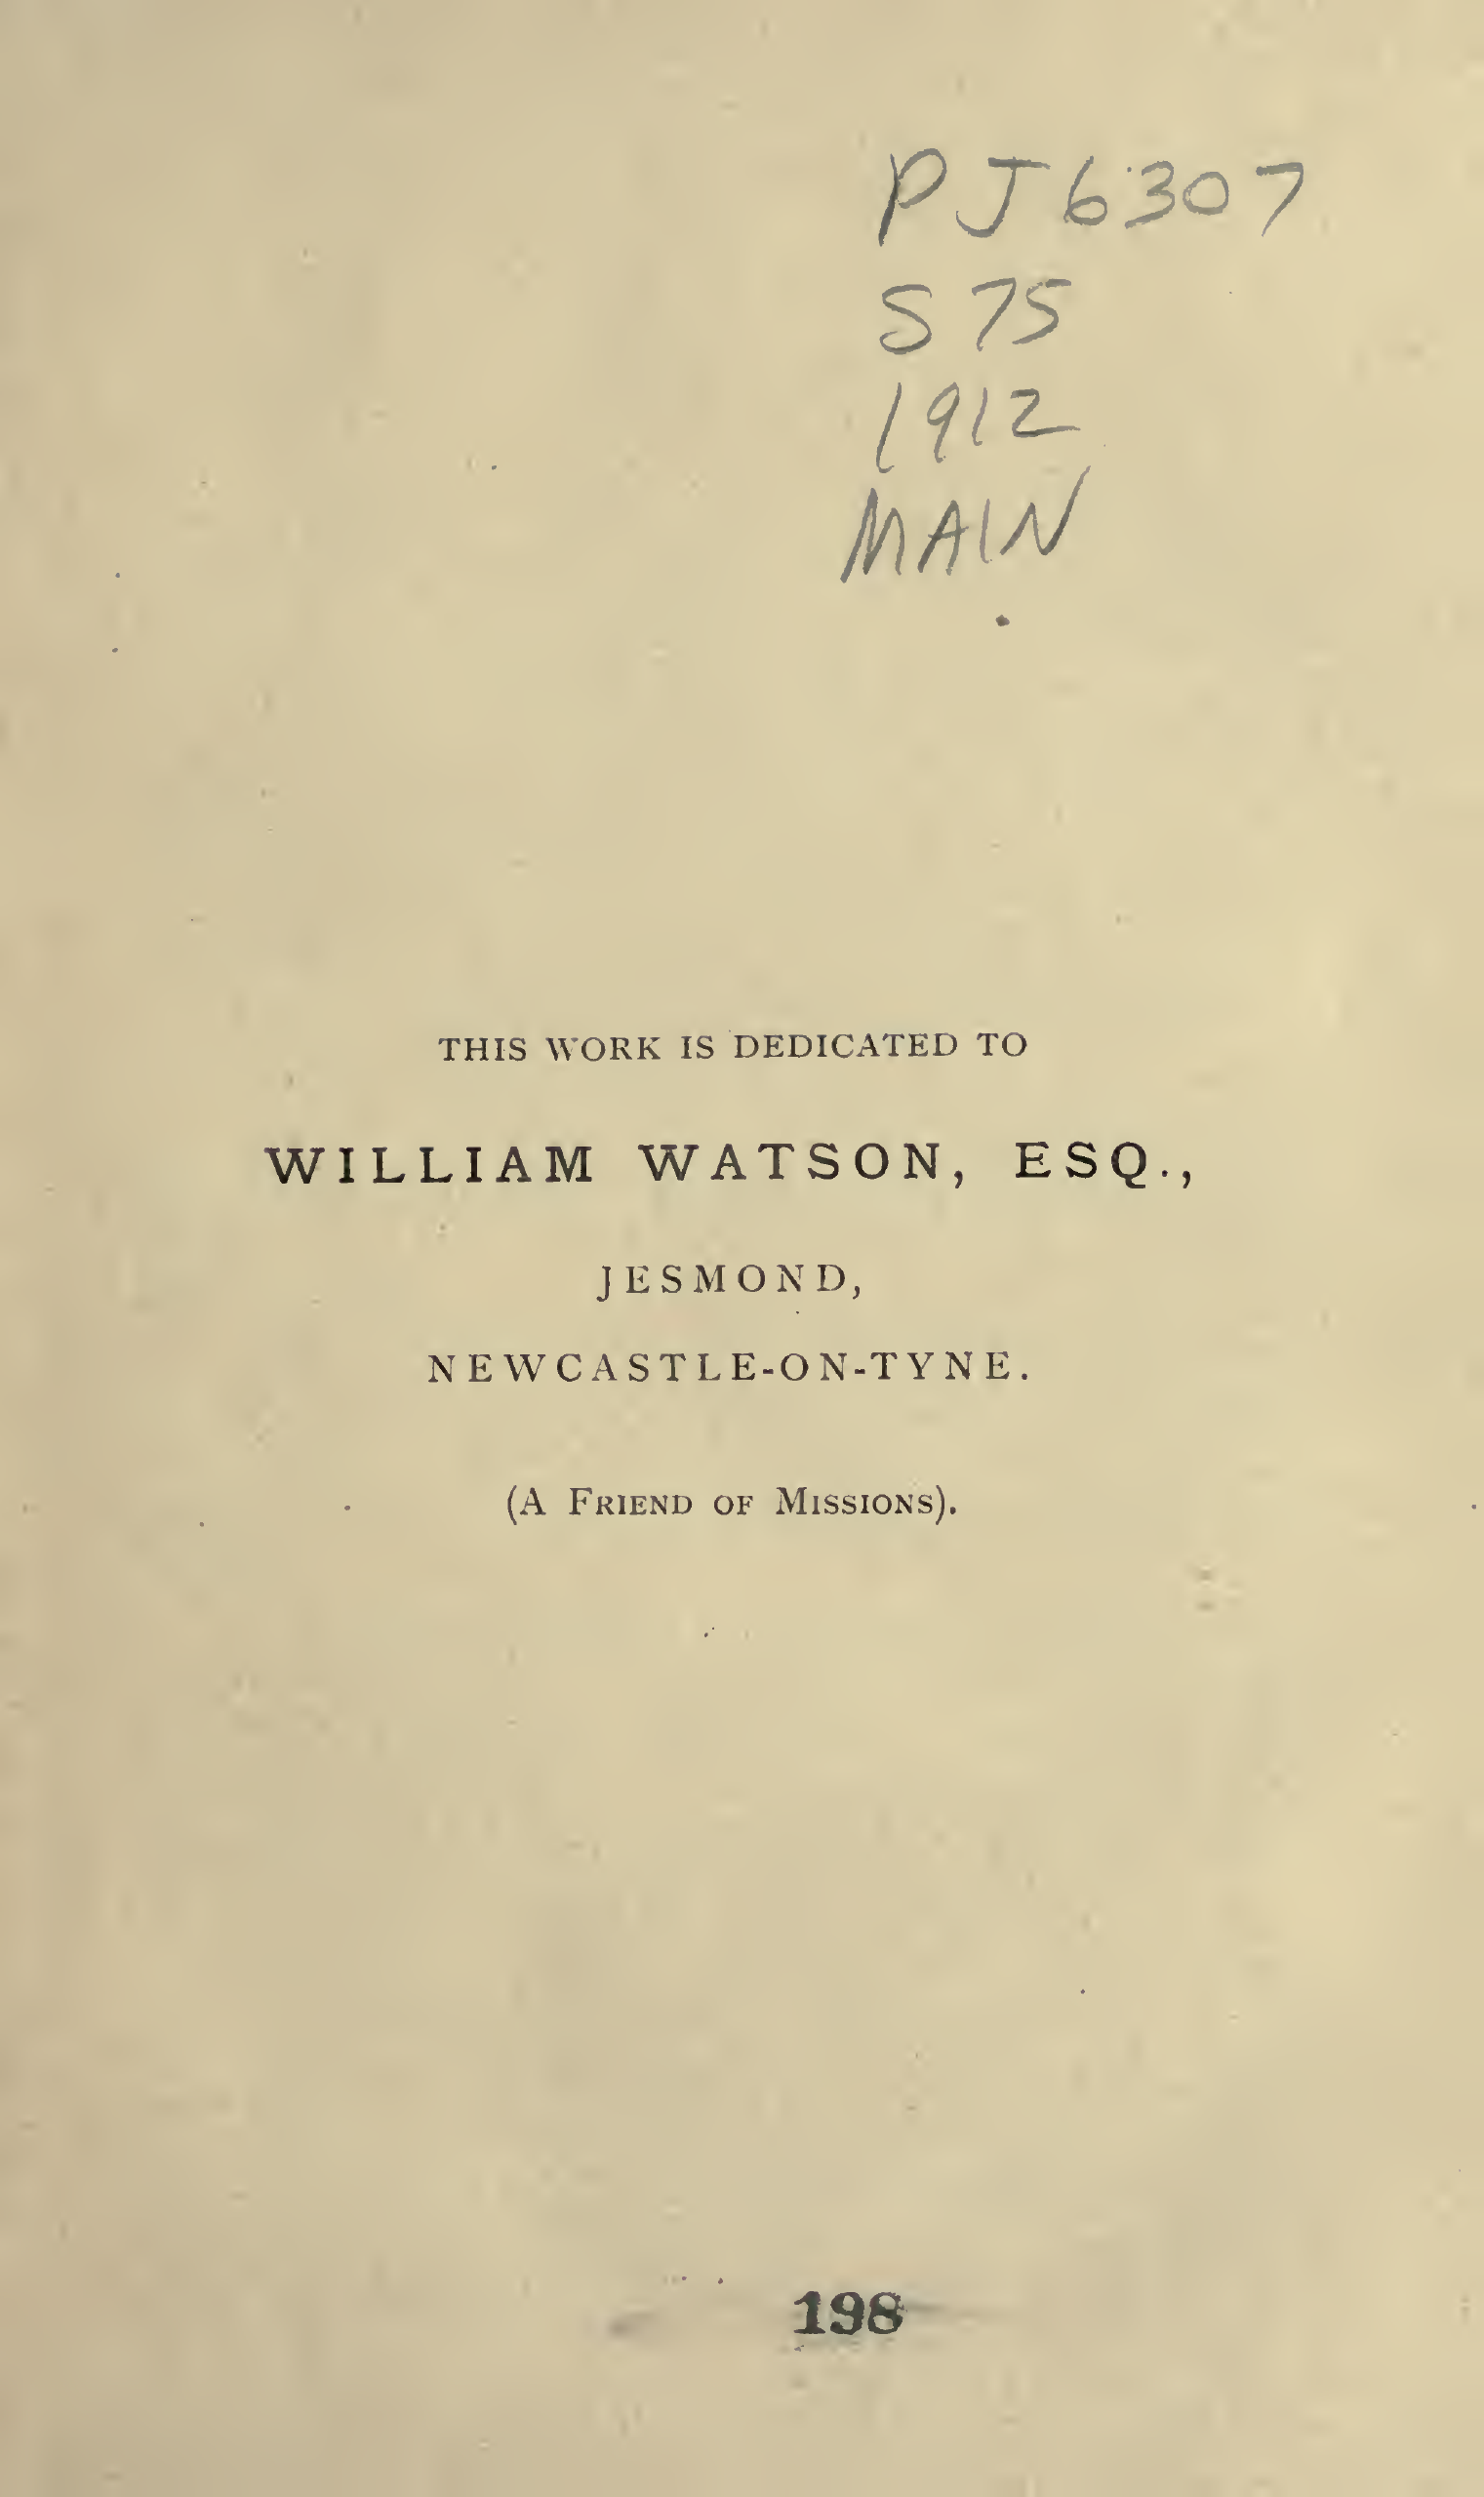 PJ6307
S75
1912
MAIN
THIS WORK IS DEDICATED TO
WILLIAM WATSON, ESQ.,
JESMOND,
NEWCASTLE-ON-TYNE.
(A FRIEND OF MISSIONS).
198